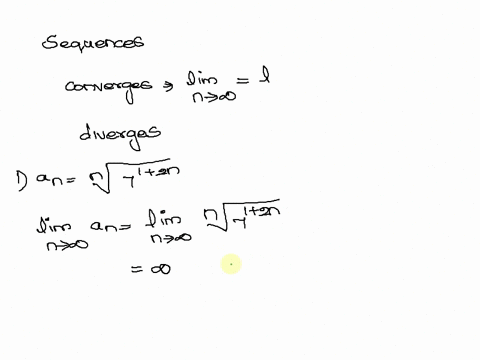 Sequences
converges → lim n→∞ = l
diverges
1) aₙ = ⁿ√7^(1+2n)
lim n→∞ aₙ = lim n→∞ ⁿ√7^(1+2n)
= ∞